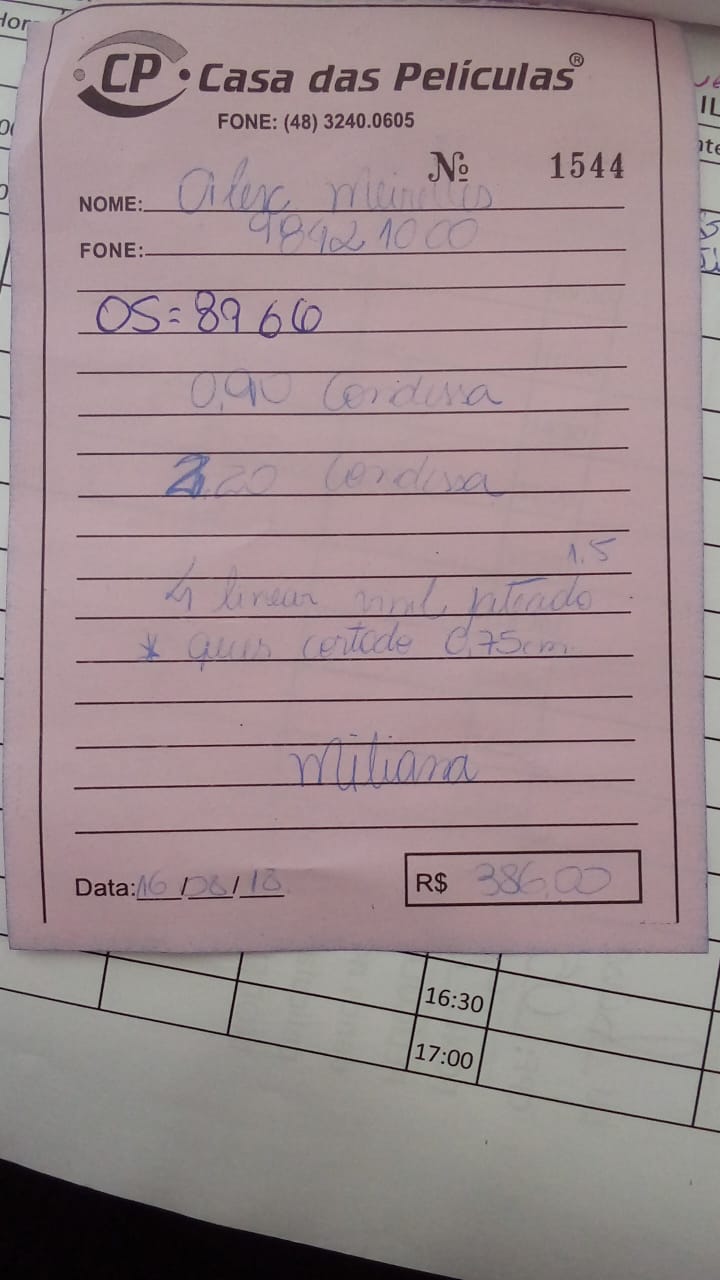 CP • Casa das Películas®
FONE: (48) 3240.0605
Nº 1544
NOME: Alex Meirelles
FONE: 98421000
OS = 8966
0,90 Condessa
20 Condessa
1.5
4 linear
* quis 0,75cm
Miliana
Data: 16/08/18 R$ 386,00
16:30
17:00